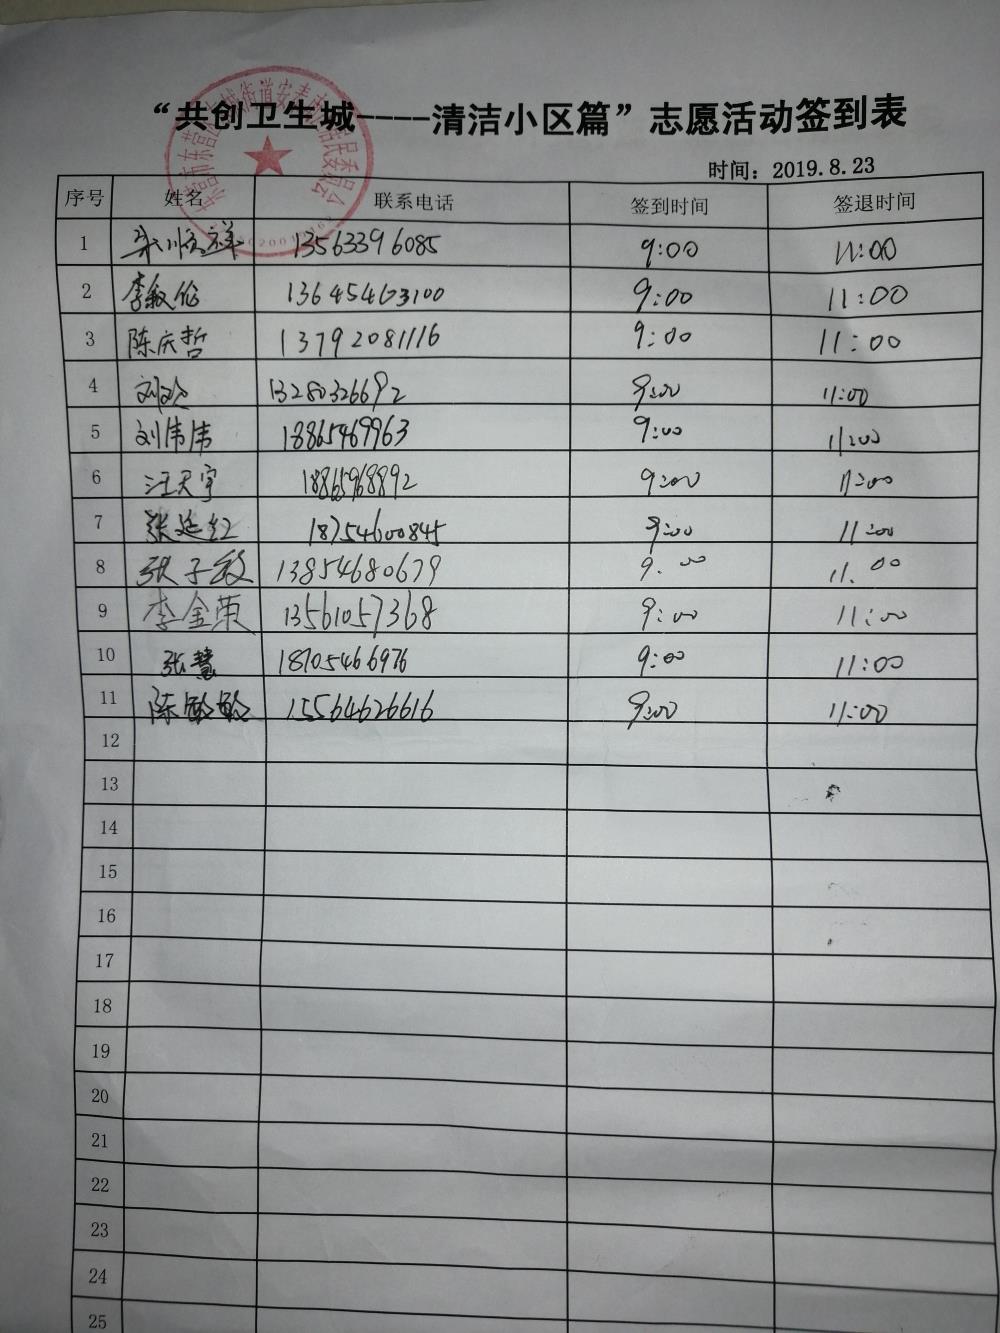 “共创卫生城----清洁小区篇”志愿活动签到表
时间：2019.8.23
序号 姓名 联系电话 签到时间 签退时间
1 13563396085 9:00 11:00
2 李叙伦 13645463100 9:00 11:00
3 陈庆哲 13792081116 9:00 11:00
4 13280326692 9:00 11:00
5 刘伟伟 18865469963 9:00 11:00
6 汪天宇 18865968892 9:00 11:00
7 张延红 18754600845 9:00 11:00
8 张子毅 13854680679 9:00 11:00
9 李金荣 13561057368 9:00 11:00
10 张慧 18705466976 9:00 11:00
11 陈敏敏 15564626616 9:00 11:00
12
13
14
15
16
17
18
19
20
21
22
23
24
25